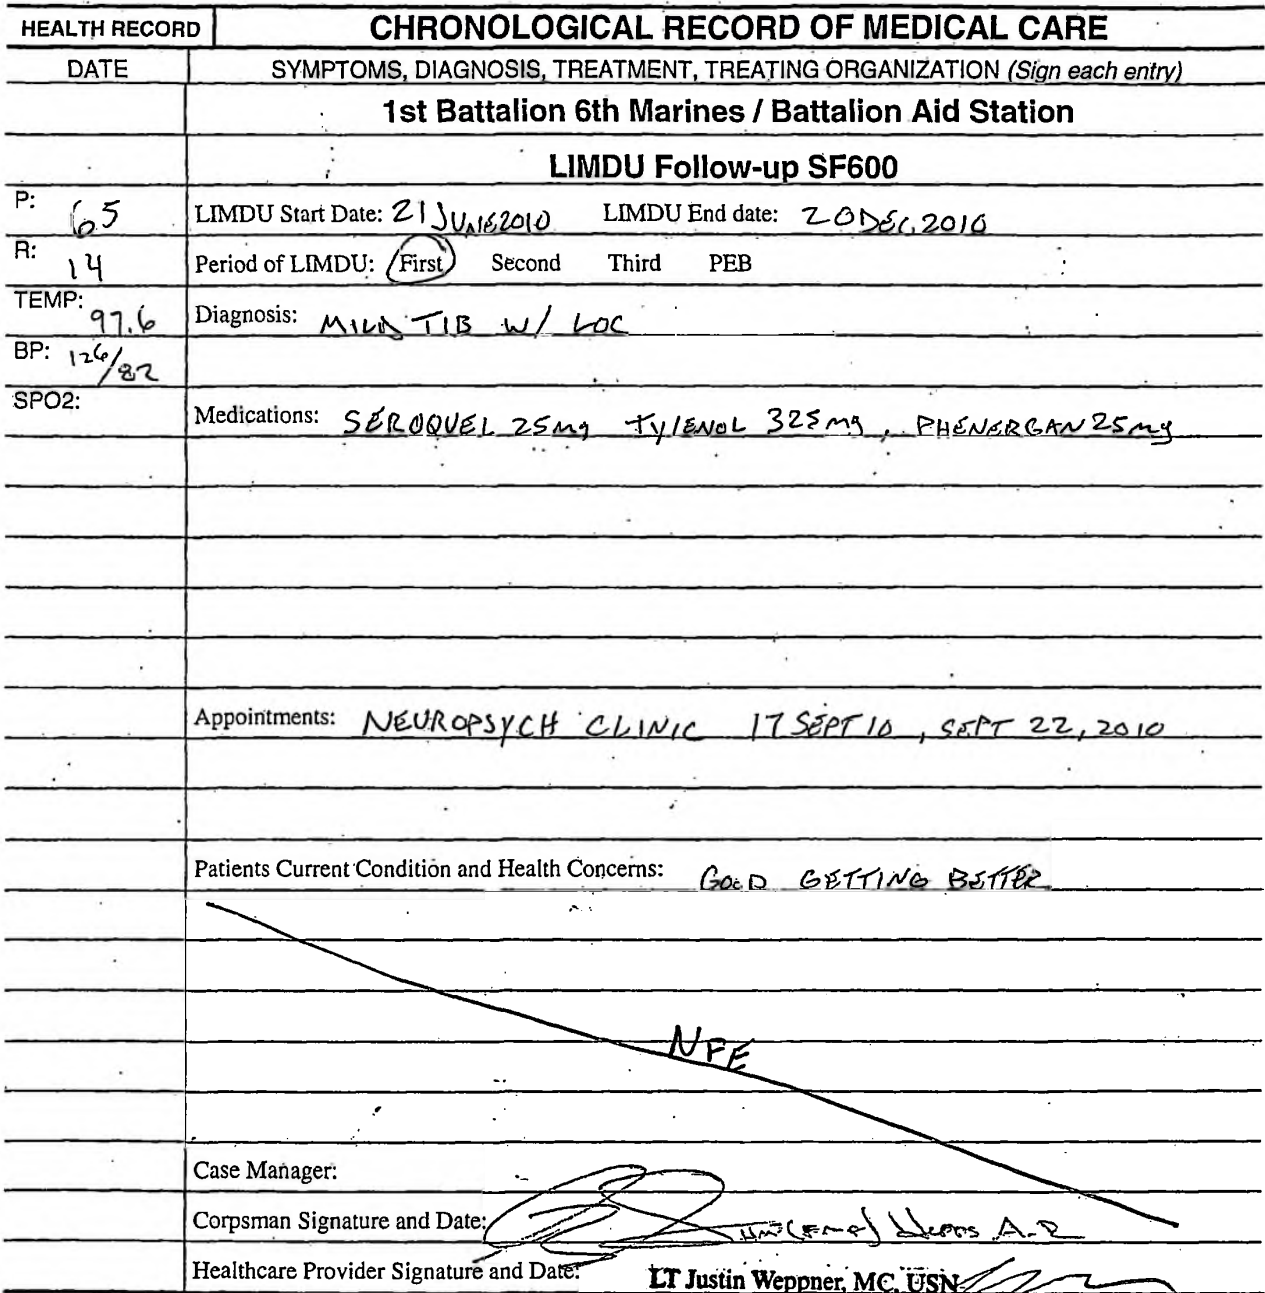 HEALTH RECORD CHRONOLOGICAL RECORD OF MEDICAL CARE
DATE SYMPTOMS, DIAGNOSIS, TREATMENT, TREATING ORGANIZATION (Sign each entry)
1st Battalion 6th Marines / Battalion Aid Station
LIMDU Follow-up SF600
P: 65 LIMDU Start Date: 21 JUNE 2010 LIMDU End date: 20 DEC, 2010
R: 14 Period of LIMDU: First Second Third PEB
TEMP: 97.6 Diagnosis: MILD TIB W/ LOC
BP: 126/82
SPO2: Medications: SEROQUEL 25mg TYLENOL 325mg, PHENERGAN 25mg
Appointments: NEUROPSYCH CLINIC 17 SEPT 10, SEPT 22, 2010
Patients Current Condition and Health Concerns: GOOD GETTING BETTER
NFE
Case Manager:
Corpsman Signature and Date: A.R
Healthcare Provider Signature and Date: LT Justin Weppner, MC, USN